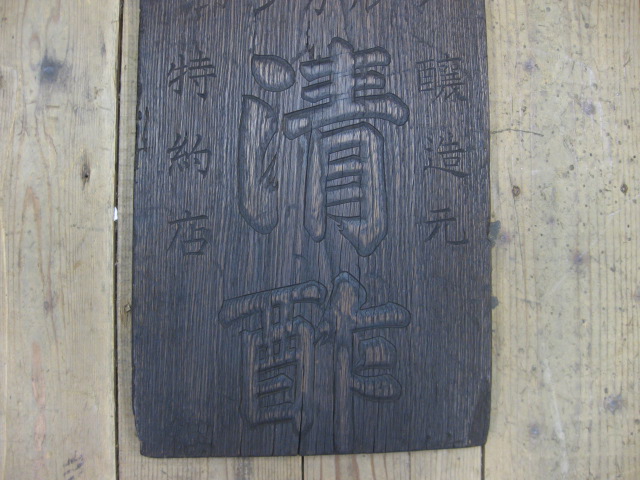 醸造元
清酢
特約店